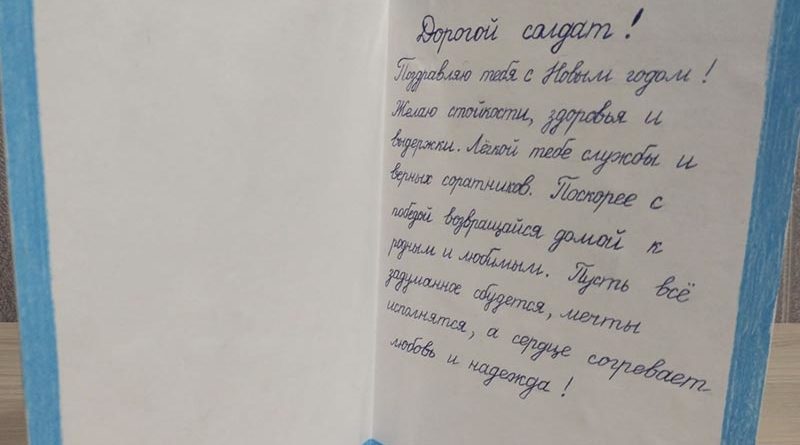 Дорогой солдат!
Поздравляю тебя с Новым годом!
Желаю стойкости, здоровья и
выдержки. Лёгкой тебе службы и
верных соратников. Поскорее с
победой возвращайся домой к
родным и любимым. Пусть всё
задуманное сбудется, мечты
исполнятся, а сердце согревает
любовь и надежда!